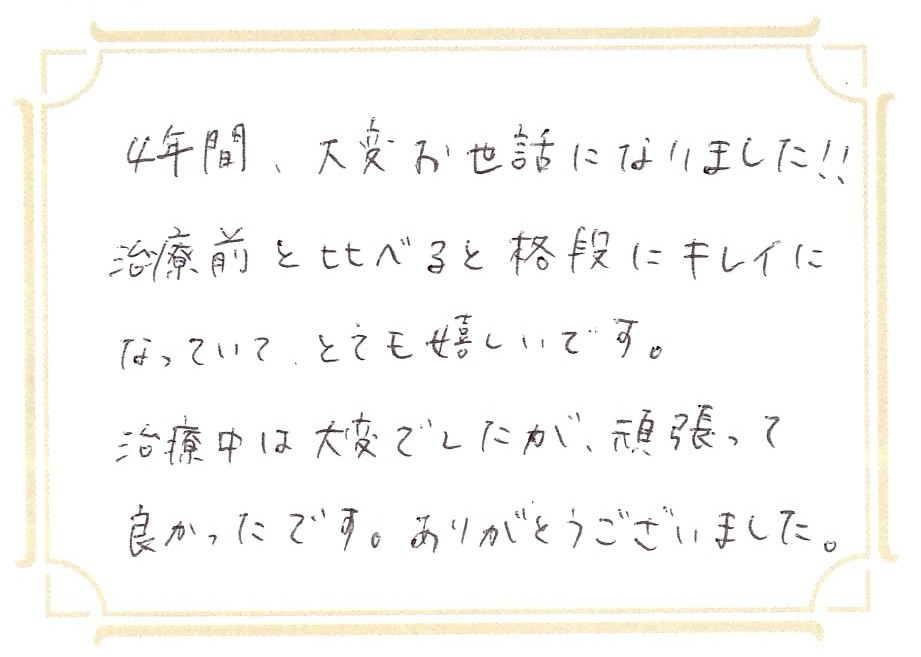 4年間、大変お世話になりました!!
治療前と比べると格段にキレイに
なっていて、とても嬉しいです。
治療中は大変でしたが、頑張って
良かったです。ありがとうございました。